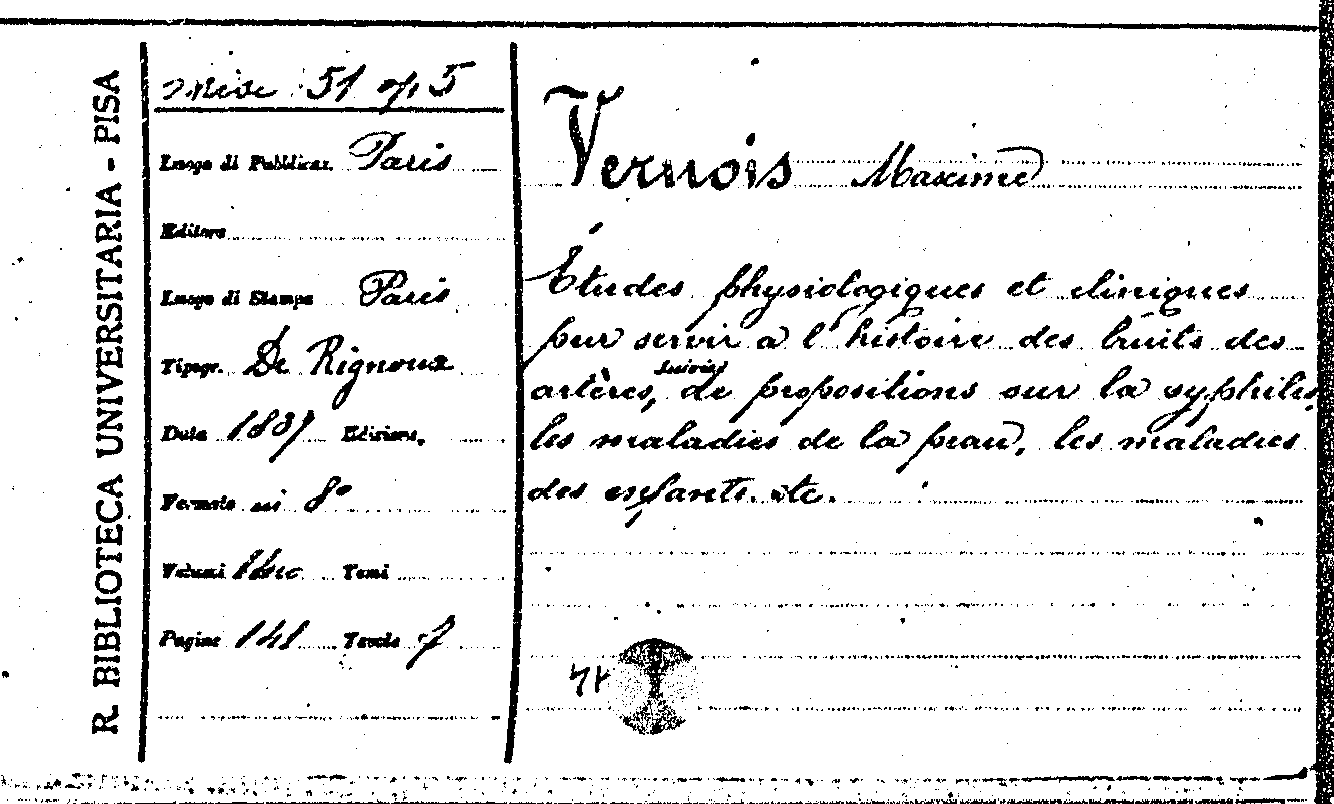 R. BIBLIOTECA UNIVERSITARIA - PISA
Misc 51 op. 5
Luogo di Pubblicaz. Paris
Editore
Luogo di Stampa Paris
Tipogr. De Rignoux
Data 1837 Edizione.
Formato in 8º
Volumi Uno Tomi
Pagine 141 Tavole
Vernois Maxime
Études physiologiques et cliniques
pur servir a l'histoire des bruits des
artères, suivies de propositions sur la syphilis,
les maladies de la peau, les maladies
des enfants. etc.